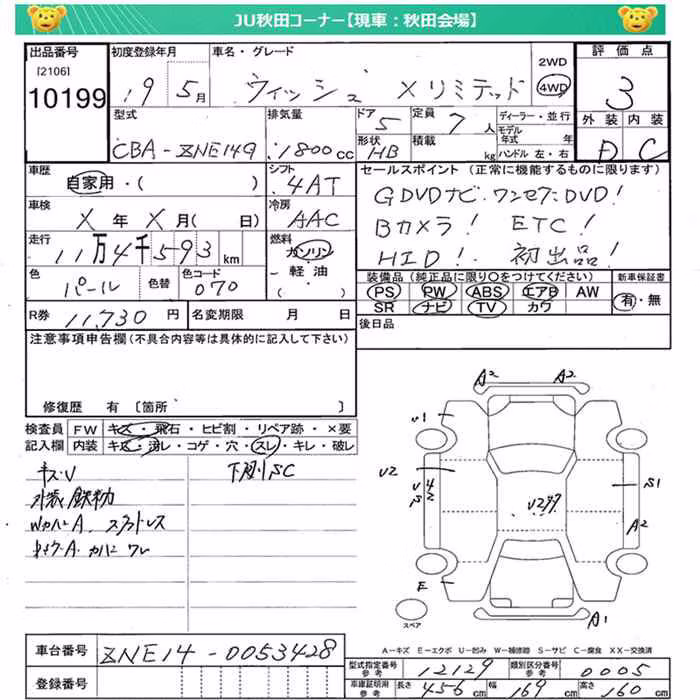 JU秋田コーナー【現車：秋田会場】
出品番号 初度登録年月 車名・グレード 評価点
[2106]
10199 19 5月 ウィッシュ Xリミテッド 2WD 4WD 3
型式 排気量 ドア 5 定員 7人 ディーラー・並行 外装 内装
CBA-ZNE14G 1800cc 形状 HB 積載 kg モデル年式 年 ハンドル 左・右 D C
車歴 シフト セールスポイント (正常に機能するものに限ります)
自家用・( ) 4AT GDVDナビ.ワンセグDVD!
車検 冷房
X年X月( 日) AAC Bカメラ! ETC!
走行 燃料
11万4千593km ガソリン HID! 初出品!
・軽油
・( )
色 パール 色替 色コード 070
装備品 (純正品に限り○をつけてください) 新車保証書
PS PW ABS エアB AW 有・無
SR ナビ TV カワ
R券 11,730円 名変期限 月 日
後日品
注意事項申告欄(不具合内容等は具体的に記入して下さい)
修復歴 有 [箇所 ]
検査員 FW キズ・飛石・ヒビ割・リペア跡・×要
記入欄 内装 キズ・汚レ・コゲ・穴・スレ・キレ・破レ
キズ・U 下廻りSC
A2 A2
U1
U2
U4
S2
S1
A2
E
A1
スペア
A－キズ E－エクボ U－凹み W－補修跡 S－サビ C－腐食 XX－交換済
車台番号 ZNE14-0053428
型式指定番号 参考 12129 類別区分番号 参考 0005
登録番号
車庫証明用 参考 長さ 456cm 幅 169cm 高さ 160cm